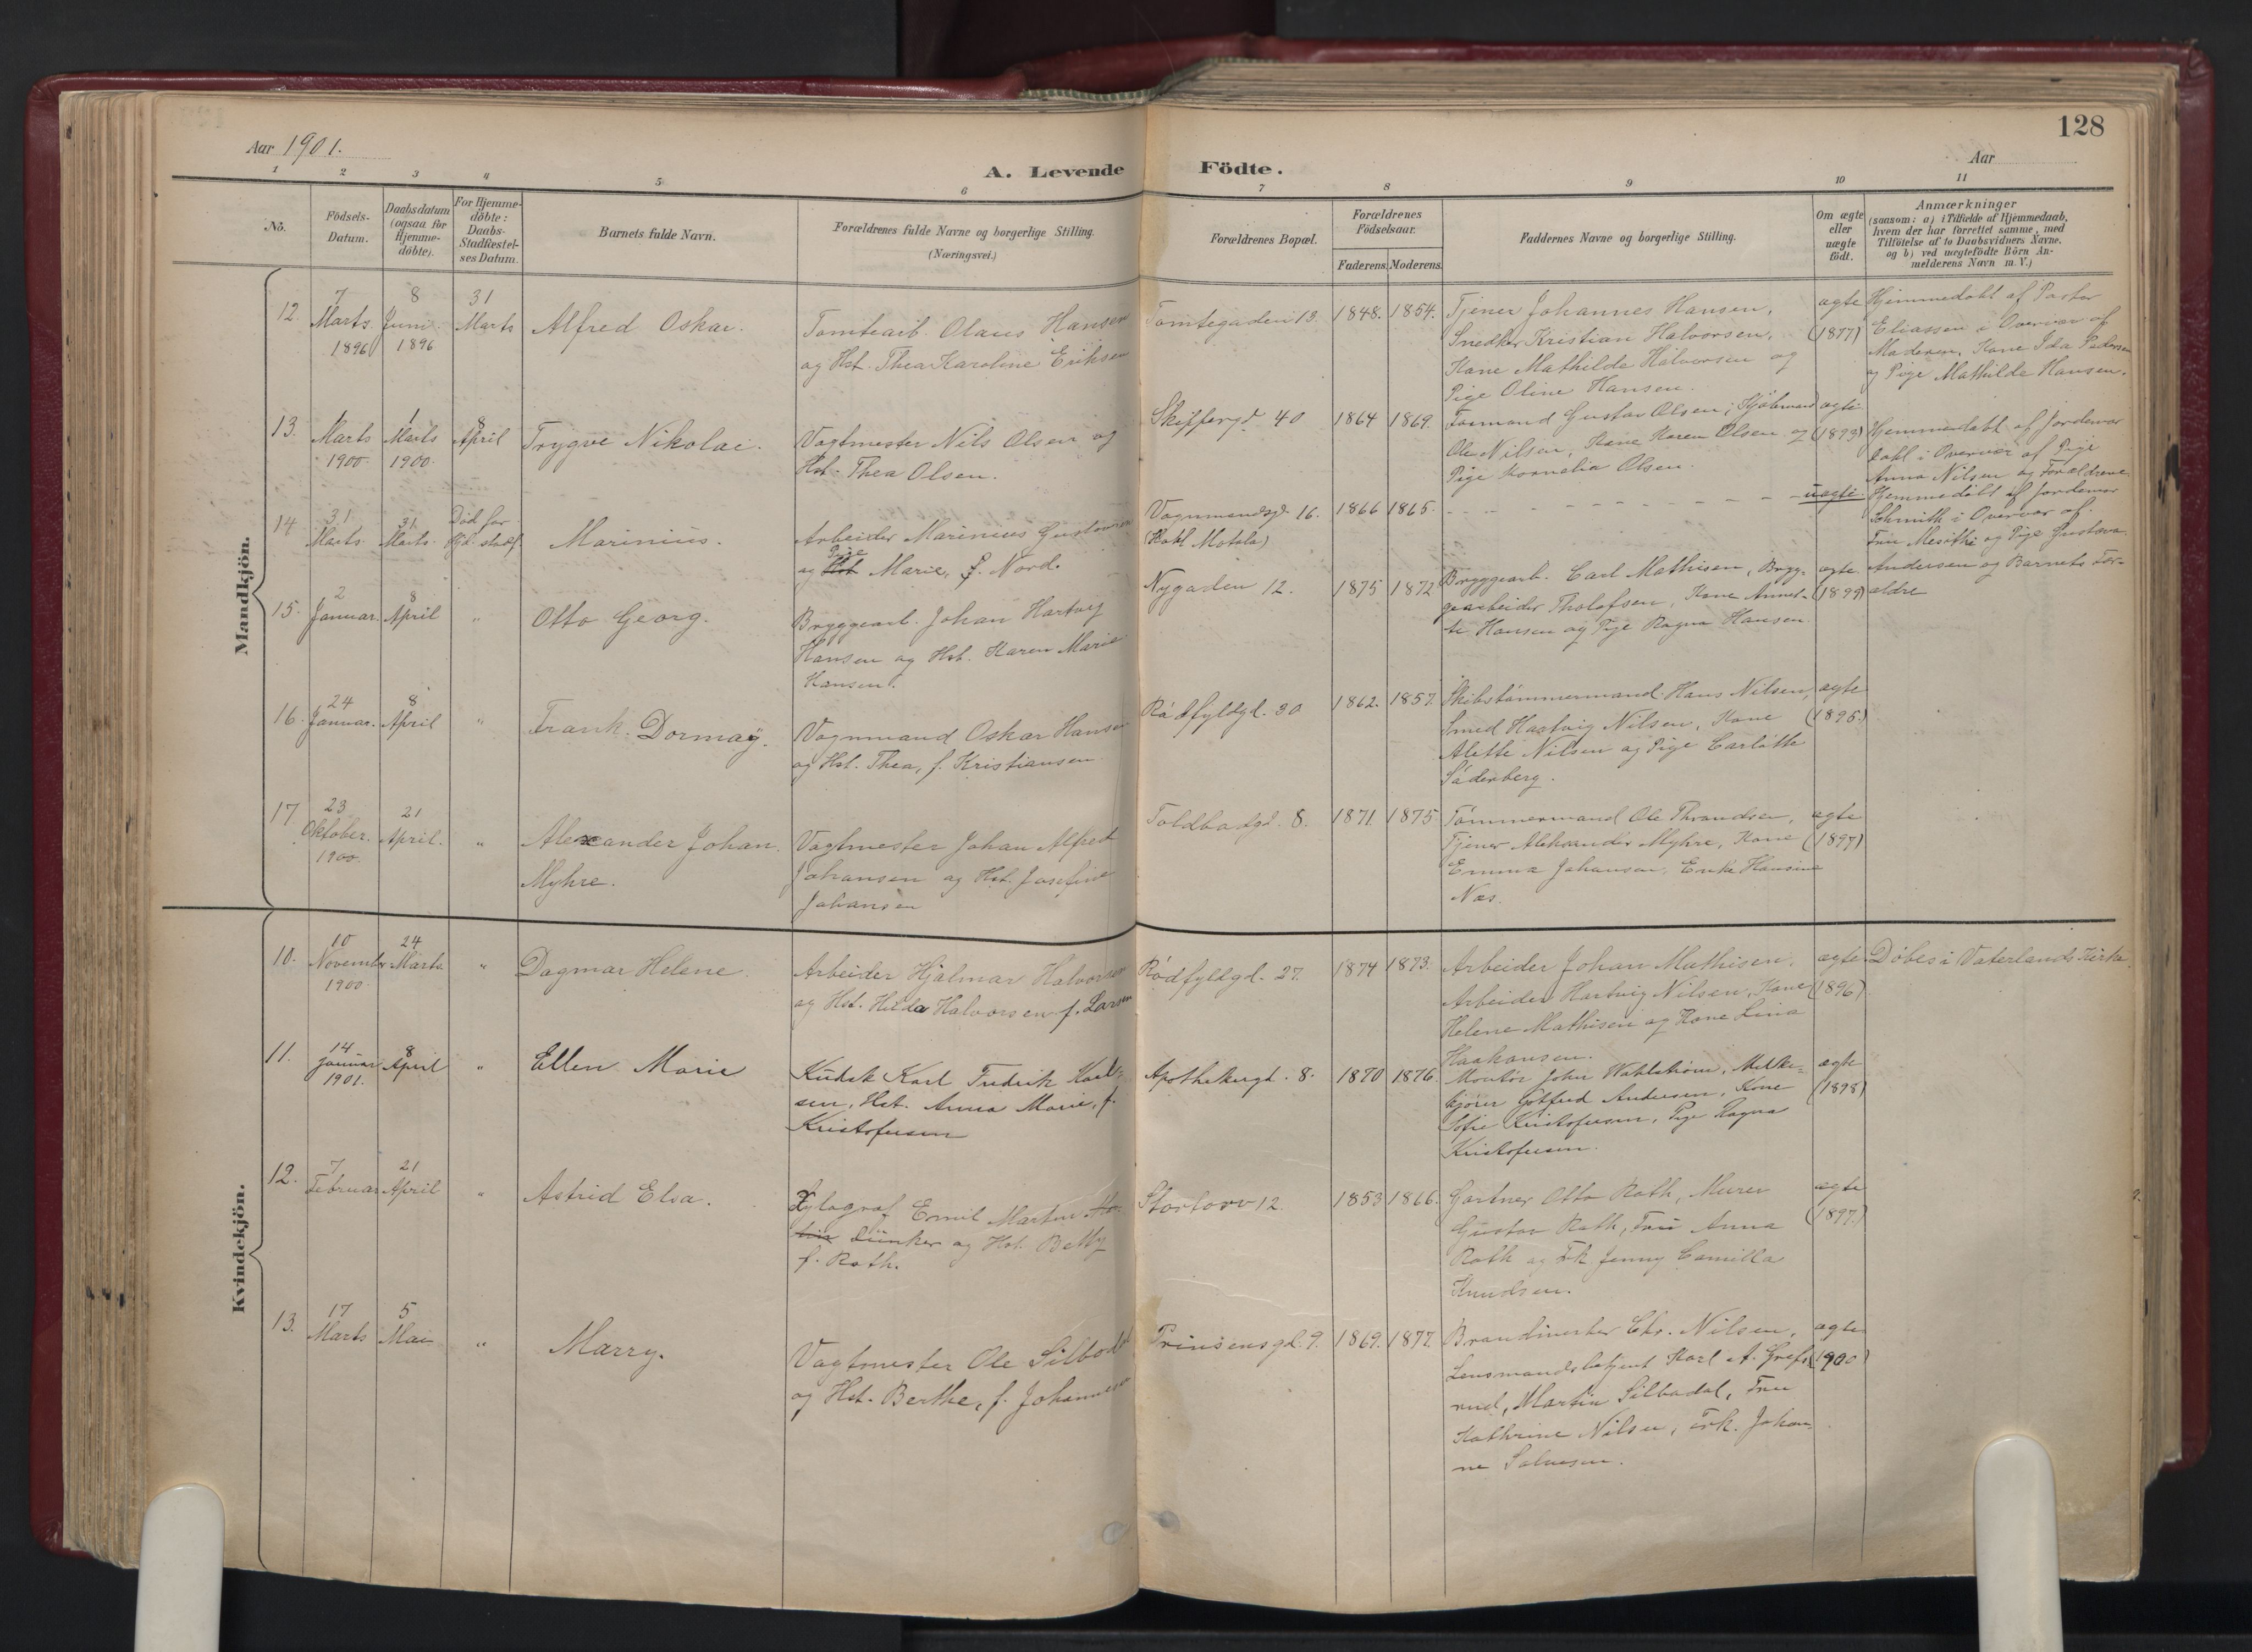 128
Aar 1901.
Aar
A. Levende Födte.
1 2 3 4 5 6 7 8 9 10 11
No.
Födsels-
Datum.
Daabsdatum
(ogsaa for
Hjemme-
döbte).
For Hjemme-
döbte:
Daabs-
Stadfæstel-
ses Datum.
Barnets fulde Navn.
Forældrenes fulde Navne og borgerlige Stilling.
(Næringsvei.)
Forældrenes Bopæl.
Forældrenes
Födselsaar.
Faderens. Moderens.
Faddernes Navne og borgerlige Stilling.
Om ægte
eller
uægte
födt.
Anmærkninger
(saasom: a) i Tilfælde af Hjemmedaab,
hvem der har forrettet samme, med
Tilföielse af to Daabsvidners Navne.
og b) ved uægtefödte Börn An-
melderens Navn m. V.)
Mandkjön.
12.
7
Marts
1896
8
Juni
1896
31
Marts
Alfred Oskar.
Tomtearb. Olaus Hansen
og Hst. Thea Karoline Eriksen
Tomtegaden 13.
1848. 1854.
Tjener Johannes Hansen,
Snedker Kristian Halvorsen,
Kone Mathilde Halvorsen og
Pige Oline Hansen.
ægte
(1877)
Hjemmedøbt af Pastor
Eliassen i Overvær af
Moderen, Kone Ida Pedersen
og Pige Mathilde Hansen.
13.
1
Marts
1900
1
Marts
1900
8
April
Trygve Nikolai.
Vagtmester Nils Olsen og
Hst. Thea Olsen.
Skippergd. 40
1864 1869.
Formand Gustav Olsen,
Ole Nilsen, Kone Karen Olsen og
Pige Kornelia Olsen.
ægte
(1893)
Hjemmedøbt af Jordemor
Dahl i Overvær af Pige
Anna Nilsen og Forældrene
14
31
Marts
31
Marts.
Død før
Stadf.
Marinius.
Arbeider Marinius Gustavsen
og Hst Pige Marie, f. Nord.
Vognmandsgd. 16.
(Hotel Motala)
1866 1865.
uægte.
Hjemmedøbt af Jordemor
Schmith i Overvær af
Fru og Pige Gustava
Andersen og Barnets For-
ældre
15.
2
Januar.
8
April
"
Otto Georg.
Bryggearb. Johan Hartvig
Hansen og Hst. Karen Marie
Hansen.
Nygaden 12.
1875 1872
Bryggearb. Carl Mathisen, Bryg-
gearbeider Tholofsen, Kone Annet-
te Hansen og Pige Ragna Hansen.
ægte
(1899)
16.
24
Januar.
8
April
"
Frank Dormaÿ.
Vognmand Oskar Hansen
og Hst. Thea, f. Kristiansen
Rødfyldgd. 30
1862. 1857.
Skibstømmermand Hans Nilsen,
Smed Hartvig Nilsen, Kone
Alette Nilsen og Pige Carlotte
Söderberg.
ægte
(1895.)
17
23
Oktober.
1900.
21
April.
"
Alexander Johan
Myhre.
Vagtmester Johan Alfred
Johansen og Hst. Josefine
Johansen
Toldbodgd. 8.
1871. 1875
Tømmermand Ole Thrandsen,
Tjener Aleksander Myhre, Kone
Emma Johansen, Enke Hansine
Næs.
ægte
(1897)
Kvindekjön.
10.
10
November
1900.
24
Marts
"
Dagmar Helene.
Arbeider Hjalmar Halvorsen
og Hst. Hilda Halvorsen f. Larsen
Rødfyllgd. 27.
1874 1873.
Arbeider Johan Mathisen,
Arbeider Hartvig Nilsen, Kone
Helene Mathisen og Kone Lina
Haakonsen.
ægte
(1896)
Døbes i Vaterlands Kirke.
11.
14
Januar
1901.
8
April
"
Ellen Marie
Kudsk Karl Fredrik Karl-
sen, Hst. Anna Marie, f.
Kristofersen
Apothekergd. 8.
1870 1876.
Montør John Wahlstrøm, Melke-
kjører Gotfred Andersen, Kone
Sofie Kristofersen, Pige Ragna
Kristofersen.
ægte
(1898)
12.
7
Februar
21
April
"
Astrid Elsa.
Xylograf Emil Martin
Dunker og Hst. Betty
f. Rath.
Stortorv 12.
1853 1866.
Gartner Otto Rath, Murer
Gustav Rath, Fru Anna
Rath og Frk. Jenny Camilla
Knudsen.
ægte
(1897.)
13.
17
Marts
5
Mai
"
Marry.
Vagtmester Ole Silbodal
og Hst. Berthe, f. Johannesen
Prinsensgd. 9.
1869. 1877.
Brandmester Chr. Nilsen,
Lensmandsbetjent Karl A. Grefs-
rud, Martin Silbodal, Fru
Kathrine Nilsen, Frk. Johan-
ne Salvesen.
ægte
(1900)